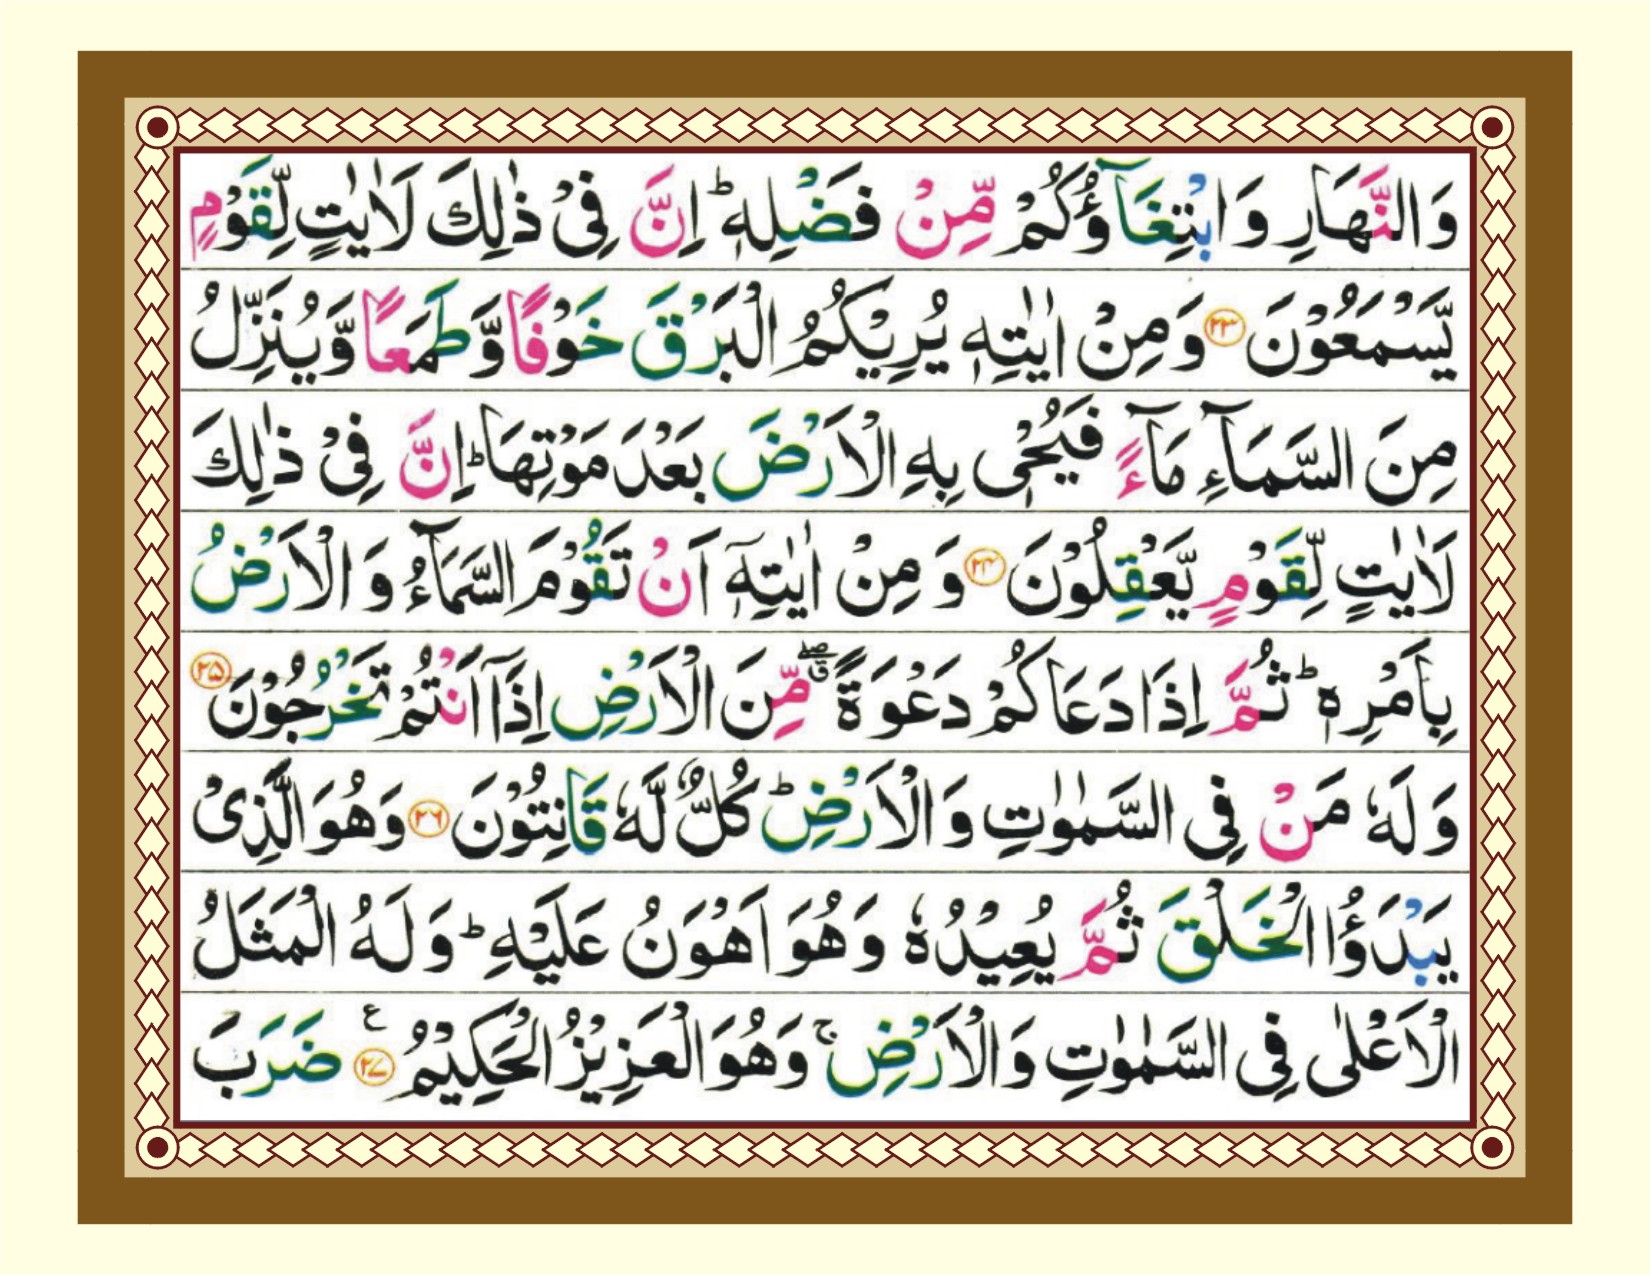 وَالنَّهَارِ وَابْتِغَآؤُكُمْ مِّنْ فَضْلِهٖ ؕ اِنَّ فِىْ ذٰلِكَ لَاٰيٰتٍ لِّقَوْمٍ
يَّسْمَعُوْنَ ﴿۲۳﴾ وَمِنْ اٰيٰتِهٖ يُرِيْكُمُ الْبَرْقَ خَوْفًا وَّطَمَعًا وَّيُنَزِّلُ
مِنَ السَّمَآءِ مَآءً فَيُحْىٖ بِهِ الْاَرْضَ بَعْدَ مَوْتِهَا ؕ اِنَّ فِىْ ذٰلِكَ
لَاٰيٰتٍ لِّقَوْمٍ يَّعْقِلُوْنَ ﴿۲۴﴾ وَمِنْ اٰيٰتِهٖۤ اَنْ تَقُوْمَ السَّمَآءُ وَالْاَرْضُ
بِاَمْرِهٖ ؕ ثُمَّ اِذَا دَعَاكُمْ دَعْوَةً ۖق مِّنَ الْاَرْضِ اِذَاۤ اَنْتُمْ تَخْرُجُوْنَ ﴿۲۵﴾
وَلَهٗ مَنْ فِى السَّمٰوٰتِ وَالْاَرْضِ ؕ كُلٌّ لَّهٗ قَانِتُوْنَ ﴿۲۶﴾ وَهُوَ الَّذِىْ
يَبْدَؤُا الْخَلْقَ ثُمَّ يُعِيْدُهٗ وَهُوَ اَهْوَنُ عَلَيْهِ ؕ وَلَهُ الْمَثَلُ
الْاَعْلٰى فِى السَّمٰوٰتِ وَالْاَرْضِ ۚ وَهُوَ الْعَزِيْزُ الْحَكِيْمُ ﴿۲۷﴾ ع ضَرَبَ